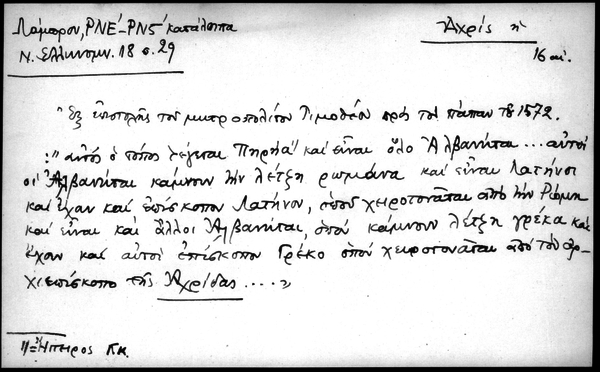 Λάμπρου, ΡΝΕ´-ΡΝς´ κατάλοιπα
Ν. Ἑλληνομν. 18 σ. 29
Ἀχρίς η
16 αἰ.
Ἐξ ἐπιστολῆς τοῦ μητροπολίτου Τιμοθέου πρὸς τὸν πάπαν τοῦ 1572.
:" αὐτὸς ὁ τόπος λέγεται Πηρηά´ καὶ εἶναι ὅλο Ἀλβανίται... αὐτοὶ
οἱ Ἀλβανίται κάμνουν τὴν λέτζη ρωμάνα καὶ εἶναι Λατῆνοι
καὶ εἶχαν καὶ ἐπίσκοπον Λατῆνον, ὁποὺ χειροτονᾶται ἀπὸ τὴν Ρώμη
καὶ εἶναι καὶ ἄλλοι Ἀλβανίται, ὁποὺ κάμνουν λέτζη γρέκα καὶ
ἔχουν καὶ αὐτοὶ ἐπίσκοπο Γρέκο ὁποὺ χειροτονᾶται ἀπὸ τὸν ἀρ-
χιεπίσκοπο τῆς Ἀχρίδας .... "
1/=Ἤπειρος Γκ.